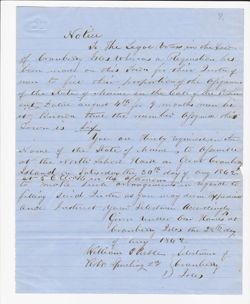 Notice
To the Legal Voters in the Town
of Cranberry Isles Whereas a Requisition has
been made on this Town for their Quota of
men to fill their proportion of the
of the State of Maine in the Call of the
Dated August 4th for 9 months men be
it known that the number against this
Town is Six
You are thereby requested in the
Name of the State of Maine to Assemble
at the North School House on Great Cranberry
Island on Saturday the 30th day of Aug 1862
at 5 O Clock in the afternoon
to make such arrangements in regard to
filling said Quota as you may deem
and Instruct your Selectmen accordingly
Given under Our Hands at
Cranberry Isles the 28th day
of Aug 1862
William Selectmen of
Spurling 2d Cranberry
Isles